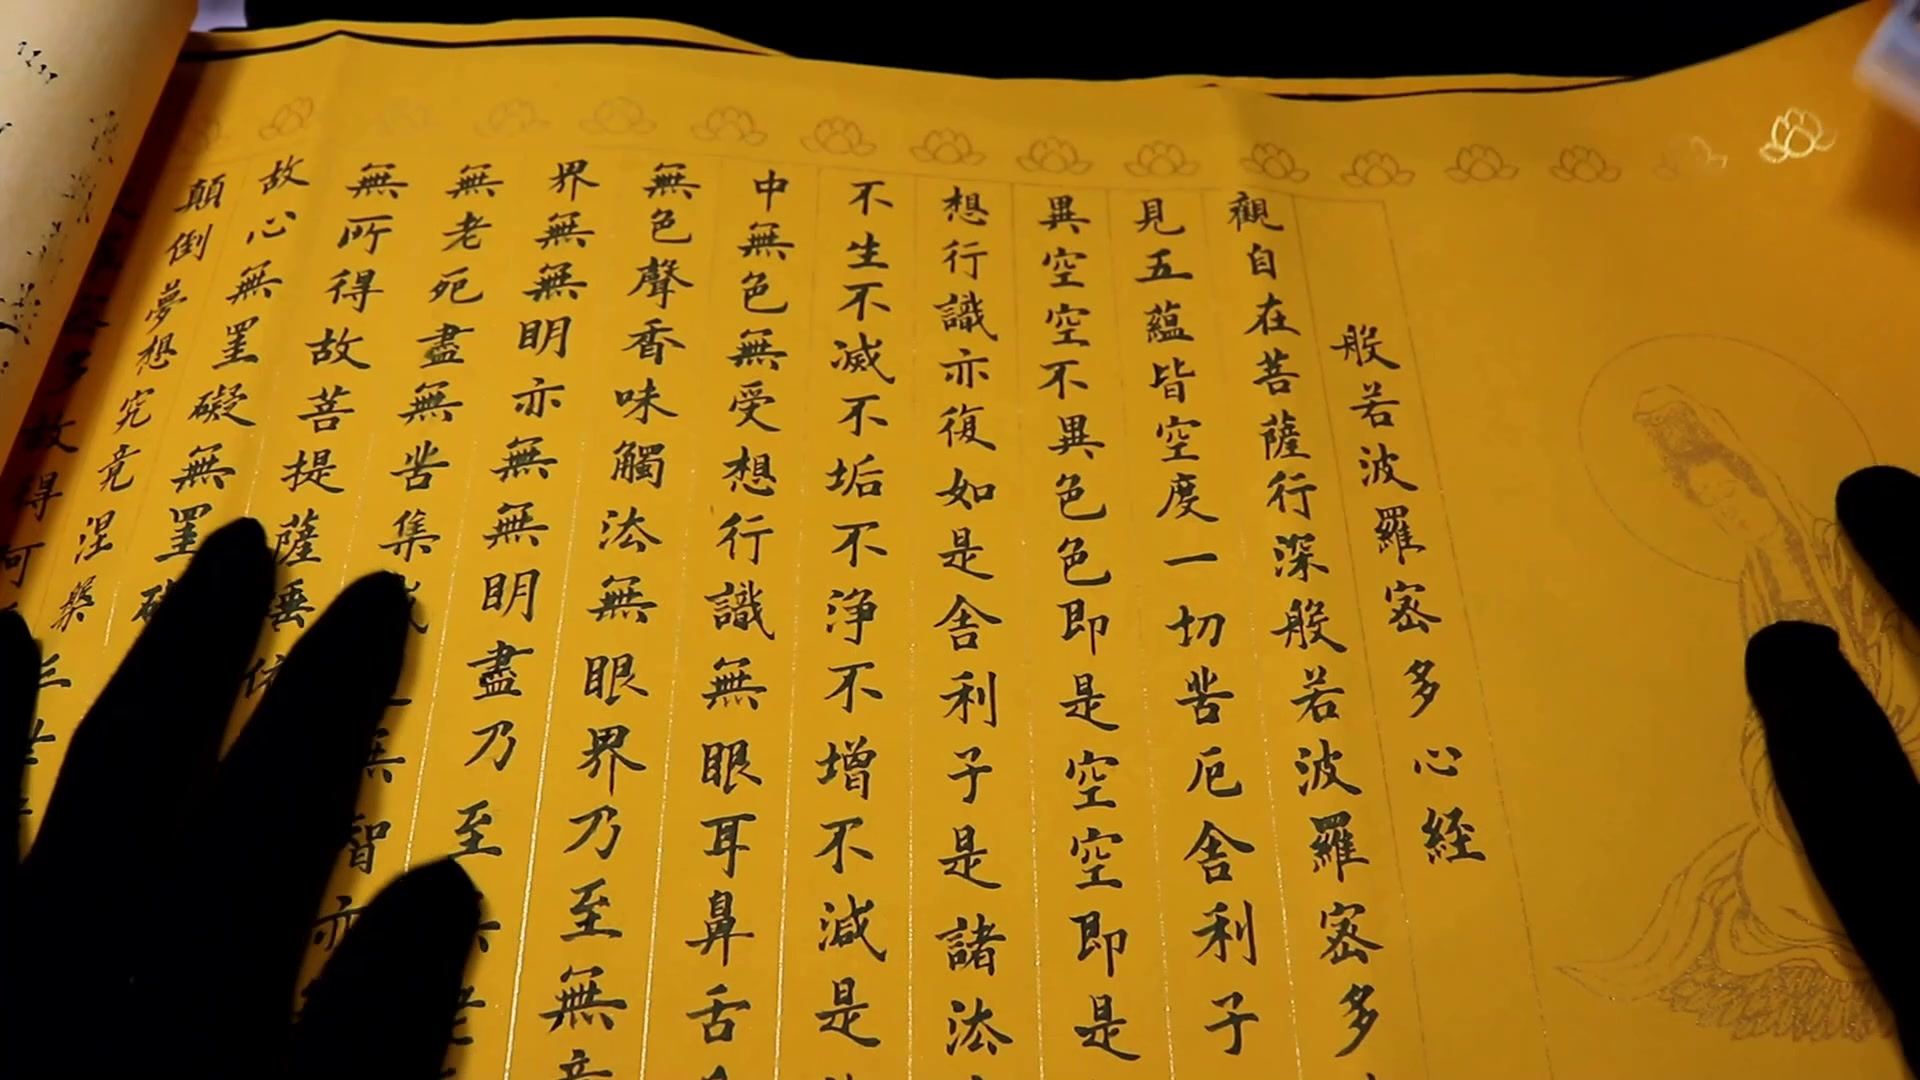 般若波羅密多心経
觀自在菩薩行深般若波羅密多
見五蘊皆空度一切苦厄舎利子
異空空不異色色即是空空即是
想行識亦復如是舎利子是諸法
不生不滅不垢不淨不增不減是
中無色無受想行識無眼耳鼻舌
無色聲香味觸法無眼界乃至無意
界無無明亦無無明盡乃至
無老死盡無苦集智亦
無所得故菩提薩埵
故心無罣礙無罣
顛倒夢想究竟涅槃
故得